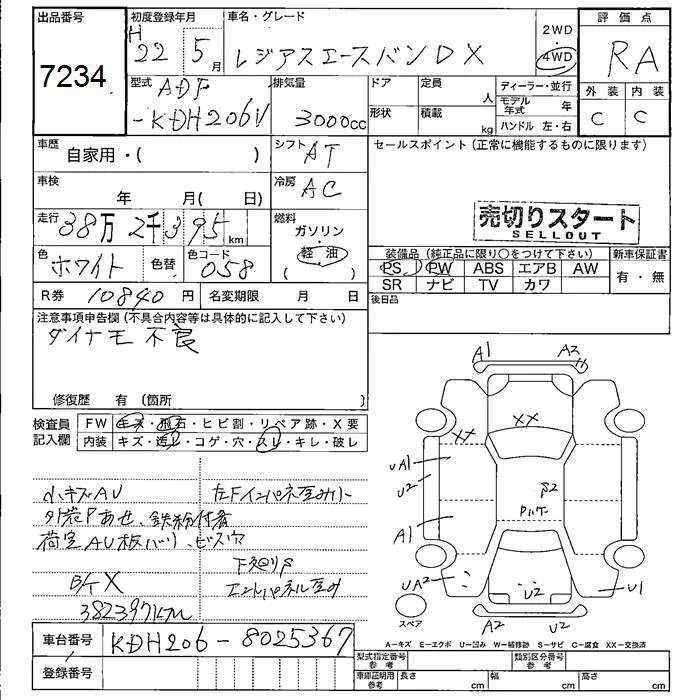 出品番号
7234
初度登録年月
H
22 5 月
車名・グレード
レジアスエースバンDX
2WD
4WD
評価点
RA
外装 内装
C C
型式
ADF
-KDH206V
排気量
3000cc
ドア
形状
定員
人
積載
kg
ディーラー・並行
モデル年式 年
ハンドル 左・右
車歴
自家用・( )
シフト
AT
セールスポイント (正常に機能するものに限ります)
車検
年 月( 日)
冷房
AC
売切りスタート
SELLOUT
走行
38万 2千395 km
燃料
ガソリン
軽油
( )
色
ホワイト
色替
色コード
058
装備品 (純正品に限り〇をつけて下さい)
PS PW ABS エアB AW
SR ナビ TV カワ
新車保証書
有・無
R券 10840 円
名変期限 月 日
後日品
注意事項申告欄 (不具合内容等は具体的に記入して下さい)
ダイナモ不良
修復歴 有 (箇所 )
検査員
記入欄
FW キズ・飛石・ヒビ割・リペア跡・X要
内装 キズ・汚レ・コゲ・穴・スレ・キレ・破レ
小キズAU
外装Pあせ、鉄粉付着
荷室AU板バリ、ビス穴
B/T X
382397KM
左Fインパネ歪み小
下廻りS
エンドパネル歪み
A1 A2
XX
XX
UA1
U2
A1
UA2
S2
Pハゲ
U2
U1
A2 U2
スペア
A-キズ E-エクボ U-凹み W-補修跡 S-サビ C-腐食 XX-交換済
車台番号 KDH206-8025367
登録番号
型式指定番号
参考
類別区分番号
参考
車庫証明用
参考
長さ cm 幅 cm 高さ cm